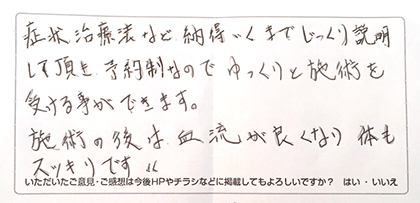 症状 治療法など 納得いくまでじっくり説明
して頂き 予約制なので ゆっくりと施術を
受ける事ができます。
施術の後は 血流が良くなり 体も
スッキリです〃
いただいたご意見・ご感想は今後HPやチラシなどに掲載してもよろしいですか？ はい・いいえ